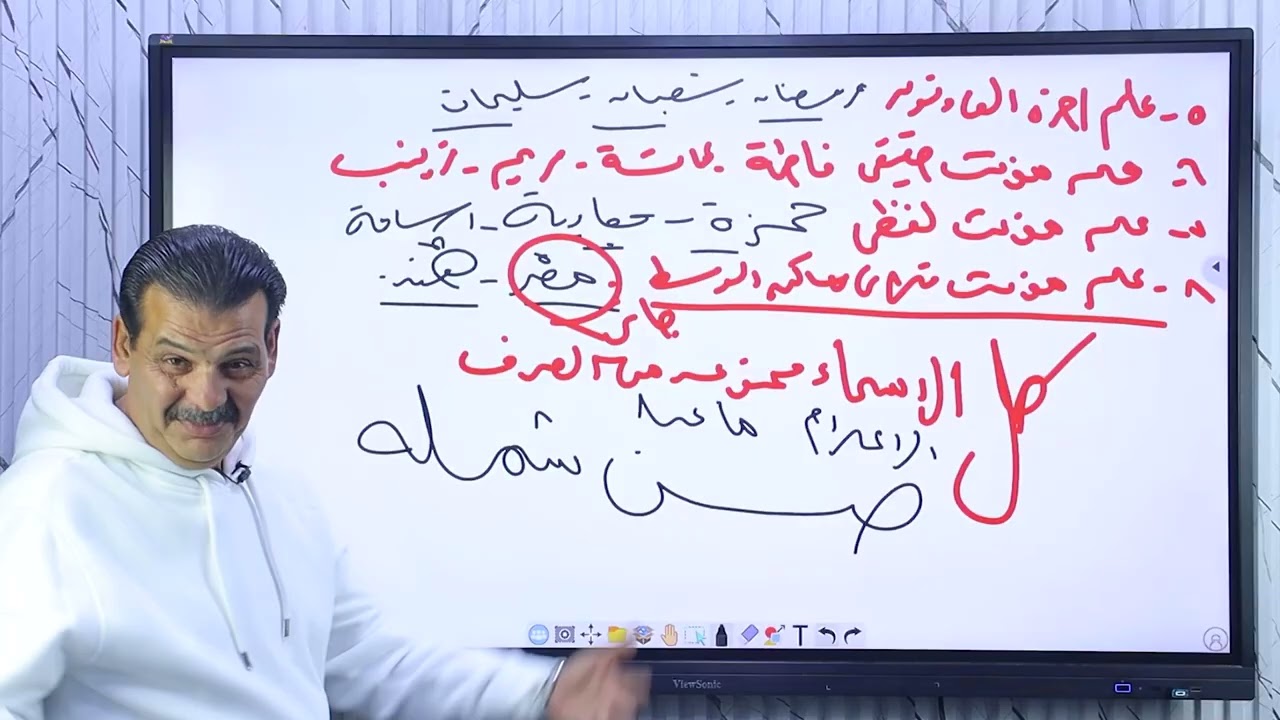 ٥ - علم اخره الف ونون رمضان - شعبان - سليمان
٦ - علم مؤنث حقيقى فاطمة عائشة - مريم - زينب
٧ - علم مؤنث لفظى حمزة - معاوية - اسامة
٨ - علم مؤنث ثلاثى ساكن الوسط مصر - هند
جائز
كل الاسماء ممنوعه من الصرف
الاعلام ماعدا
صن شمله
ViewSonic